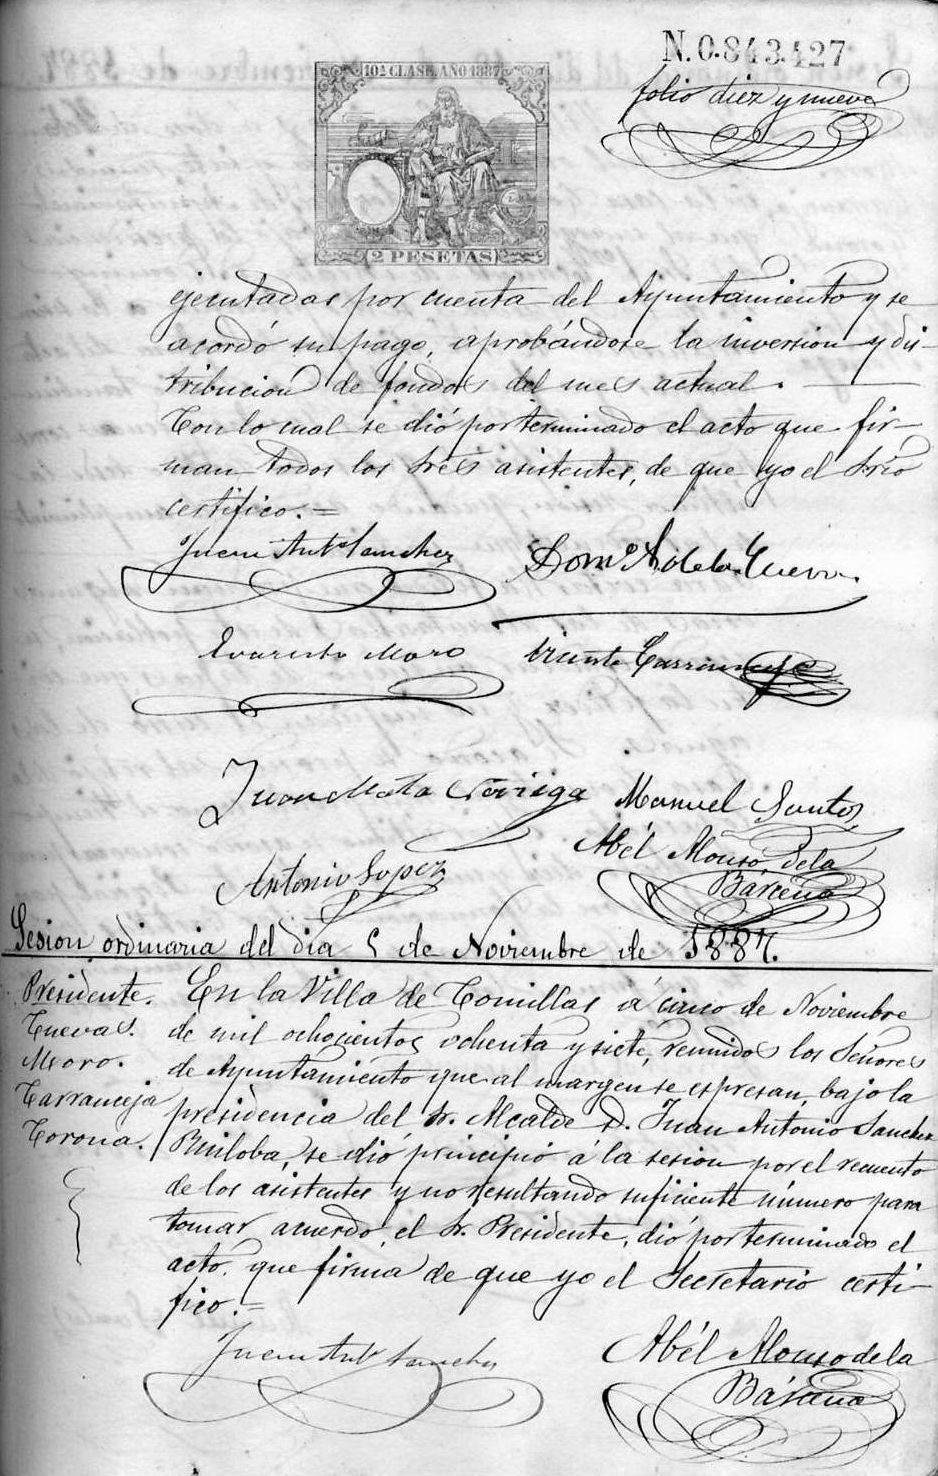 N.0.843.427
folio diez y nueve
10ª CLASE. AÑO 1887
2 PESETAS
ejecutadas por cuenta del Ayuntamiento y se
acordó su pago, aprobándose la inversion y dis-
tribucion de fondos del mes actual.
Con lo cual se dió por terminado el acto que fir-
man todos los Sres asistentes, de que yo el Srio
certifico.=
Juan Antº Sanchez
Domº A de la Cueva
Evaristo Moro
Vicente Carranceja
Juan Mata Noriega
Manuel Santos
Abél Alonso dela
Bárcena
Antonio Lopez
Sesion ordinaria del dia 5 de Noviembre de 1887.
Presidente.
Cuevas.
Moro.
Carranceja
Corona.
En la Villa de Comillas á cinco de Noviembre
de mil ochocientos ochenta y siete, reunidos los Señores
de Ayuntamiento que al margen se espresan, bajo la
presidencia del Sr. Alcalde D. Juan Antonio Sanchez
Ruiloba, se dió principio á la sesion por el recuento
de los asistentes y no resultando suficiente número para
tomar acuerdo, el Sr. Presidente, dió por terminado el
acto, que firma de que yo el Secretario certi-
fico.=
Juan Antº Sanchez
Abél Alonso de la
Bárcena